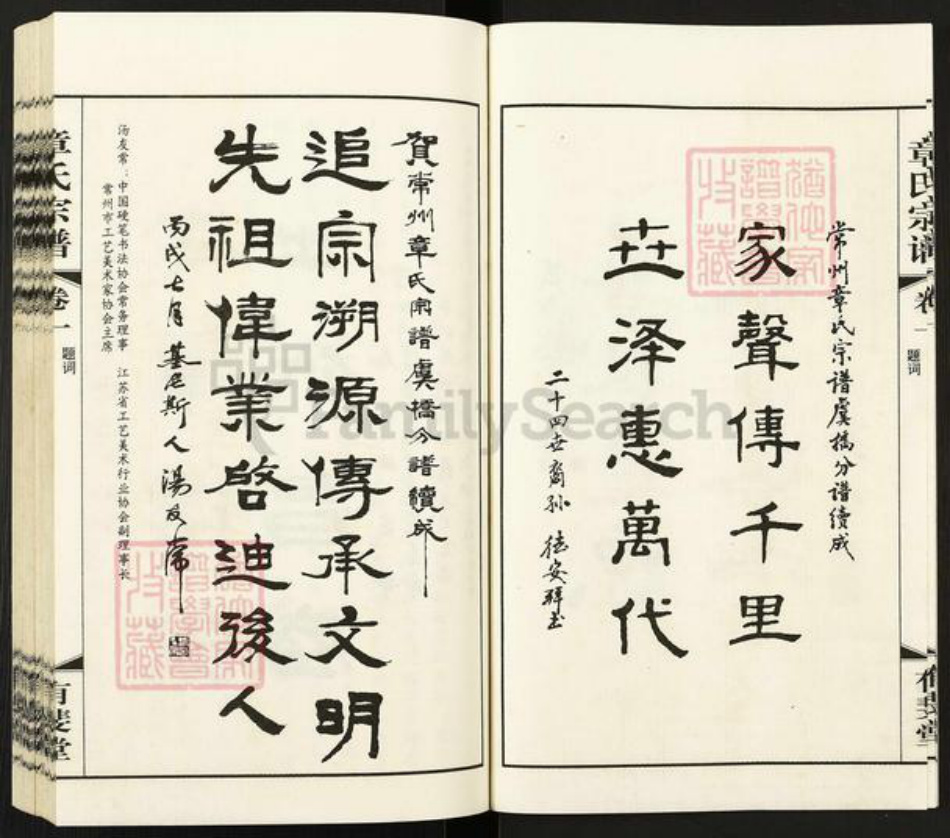 章氏宗谱
卷一
题词
有斐堂
常州章氏宗谱虞橋分谱續成
家聲傳千里
卋泽惠萬代
二十四世裔孙 德安拜书
賀常州章氏宗譜虞橋分譜續成
追宗溯源傳承文明
先祖偉業啓迪後人
丙戌七月 墓尼斯人湯友常
汤友常：中国硬笔书法协会常务理事 江苏省工艺美术行业协会副理事长
常州市工艺美术家协会主席
章氏宗谱
卷一
题词
有斐堂
FamilySearch